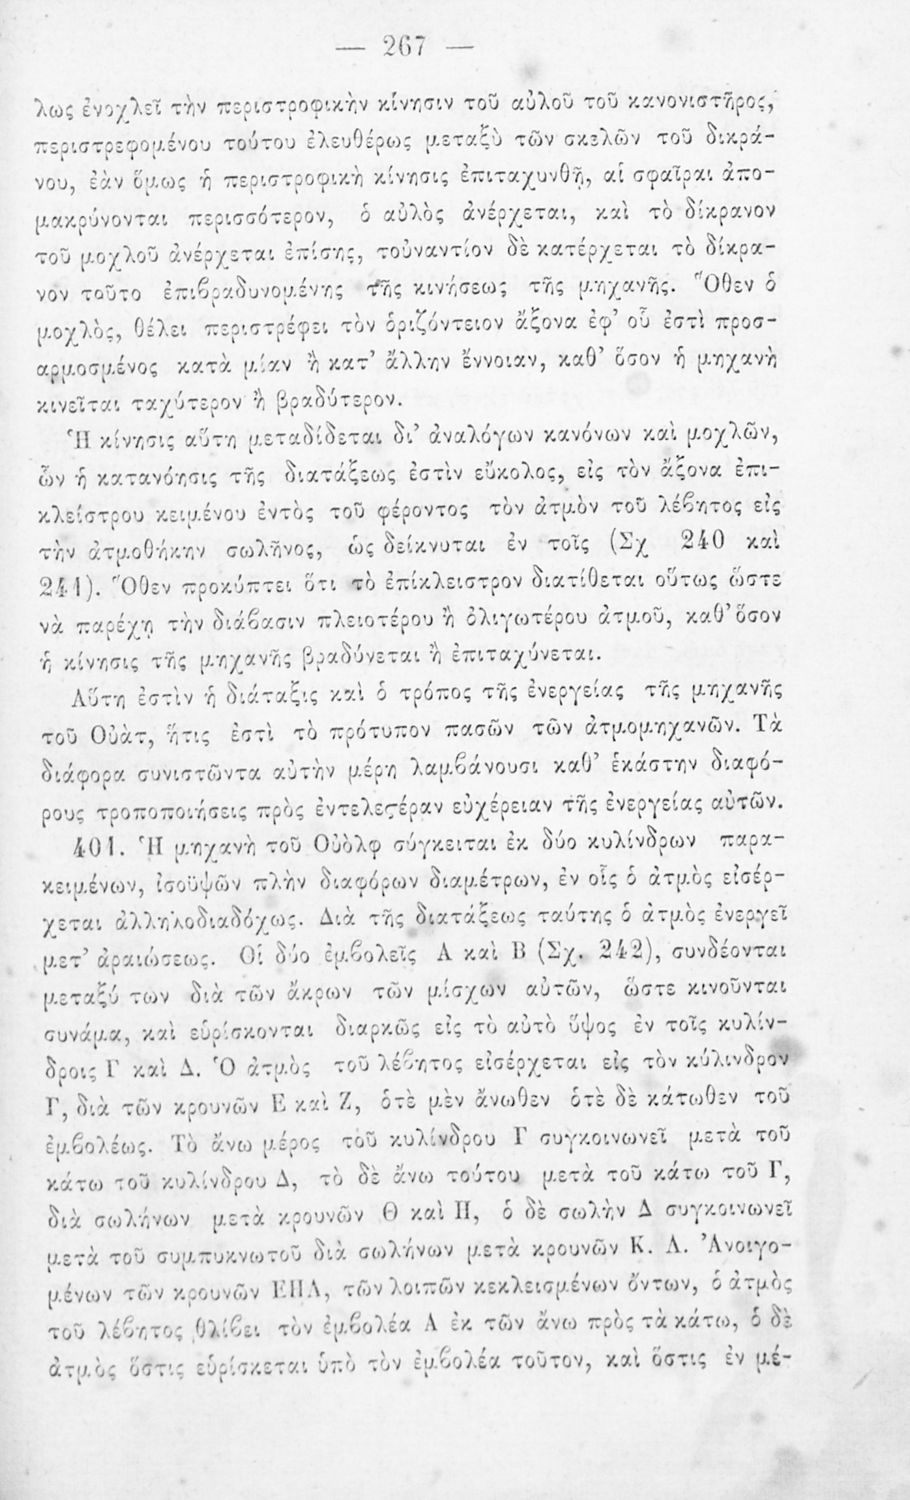 — 267 —
λως ἐνοχλεῖ τὴν περιστροφικὴν κίνησιν τοῦ αὐλοῦ τοῦ κανονιστῆρος,
περιστρεφομένου τούτου ἐλευθέρως μεταξὺ τῶν σκελῶν τοῦ δικρά-
νου, ἐὰν ὅμως ἡ περιστροφικὴ κίνησις ἐπιταχυνθῇ, αἱ σφαῖραι ἀπο-
μακρύνονται περισσότερον, ὁ αὐλὸς ἀνέρχεται, καὶ τὸ δίκρανον
τοῦ μοχλοῦ ἀνέρχεται ἐπίσης, τοὐναντίον δὲ κατέρχεται τὸ δίκρα-
νον τοῦτο ἐπιβραδυνομένης τῆς κινήσεως τῆς μηχανῆς. Ὅθεν ὁ
μοχλὸς, θέλει περιστρέφει τὸν ὁριζόντειον ἄξονα ἐφ’ οὗ ἐστὶ προσ-
αρμοσμένος κατὰ μίαν ἢ κατ’ ἄλλην ἔννοιαν, καθ’ ὅσον ἡ μηχανὴ
κινεῖται ταχύτερον ἢ βραδύτερον.
Ἡ κίνησις αὕτη μεταδίδεται δι’ ἀναλόγων κανόνων καὶ μοχλῶν,
ὧν ἡ κατανόησις τῆς διατάξεως ἐστὶν εὔκολος, εἰς τὸν ἄξονα ἐπι-
κλείστρου κειμένου ἐντὸς τοῦ φέροντος τὸν ἀτμὸν τοῦ λέβητος εἰς
τὴν ἀτμοθήκην σωλῆνος, ὡς δείκνυται ἐν τοῖς (Σχ 240 καὶ
241). Ὅθεν προκύπτει ὅτι τὸ ἐπίκλειστρον διατίθεται οὕτως ὥστε
νὰ παρέχῃ τὴν διάβασιν πλειοτέρου ἢ ὀλιγωτέρου ἀτμοῦ, καθ’ ὅσον
ἡ κίνησις τῆς μηχανῆς βραδύνεται ἢ ἐπιταχύνεται.
Αὕτη ἐστὶν ἡ διάταξις καὶ ὁ τρόπος τῆς ἐνεργείας τῆς μηχανῆς
τοῦ Οὐὰτ, ἥτις ἐστὶ τὸ πρότυπον πασῶν τῶν ἀτμομηχανῶν. Τὰ
διάφορα συνιστῶντα αὐτὴν μέρη λαμβάνουσι καθ’ ἑκάστην διαφό-
ρους τροποποιήσεις πρὸς ἐντελεϛέραν εὐχέρειαν τῆς ἐνεργείας αὐτῶν.
401. Ἡ μηχανὴ τοῦ Οὐὸλφ σύγκειται ἐκ δύο κυλίνδρων παρα-
κειμένων, ἰσοϋψῶν πλὴν διαφόρων διαμέτρων, ἐν οἷς ὁ ἀτμὸς εἰσέρ-
χεται ἀλληλοδιαδόχως. Διὰ τῆς διατάξεως ταύτης ὁ ἀτμὸς ἐνεργεῖ
μετ’ ἀραιώσεως. Οἱ δύο ἐμβολεῖς Α καὶ Β (Σχ. 242), συνδέονται
μεταξύ των διὰ τῶν ἄκρων τῶν μίσχων αὐτῶν, ὥστε κινοῦνται
συνάμα, καὶ εὑρίσκονται διαρκῶς εἰς τὸ αὐτὸ ὕψος ἐν τοῖς κυλίν-
δροις Γ καὶ Δ. Ὁ ἀτμὸς τοῦ λέβητος εἰσέρχεται εἰς τὸν κύλινδρον
Γ, διὰ τῶν κρουνῶν Ε καὶ Ζ, ὁτὲ μὲν ἄνωθεν ὁτὲ δὲ κάτωθεν τοῦ
ἐμβολέως. Τὸ ἄνω μέρος τοῦ κυλίνδρου Γ συγκοινωνεῖ μετὰ τοῦ
κάτω τοῦ κυλίνδρου Δ, τὸ δὲ ἄνω τούτου μετὰ τοῦ κάτω τοῦ Γ,
διὰ σωλήνων μετὰ κρουνῶν Θ καὶ Η, ὁ δὲ σωλὴν Δ συγκοινωνεῖ
μετὰ τοῦ συμπυκνωτοῦ διὰ σωλήνων μετὰ κρουνῶν Κ. Λ. Ἀνοιγο-
μένων τῶν κρουνῶν ΕΗΛ, τῶν λοιπῶν κεκλεισμένων ὄντων, ὁ ἀτμὸς
τοῦ λέβητος θλίβει τὸν ἐμβολέα Α ἐκ τῶν ἄνω πρὸς τὰ κάτω, ὁ δὲ
ἀτμὸς ὅστις εὑρίσκεται ὑπὸ τὸν ἐμβολέα τοῦτον, καὶ ὅστις ἐν μέ-